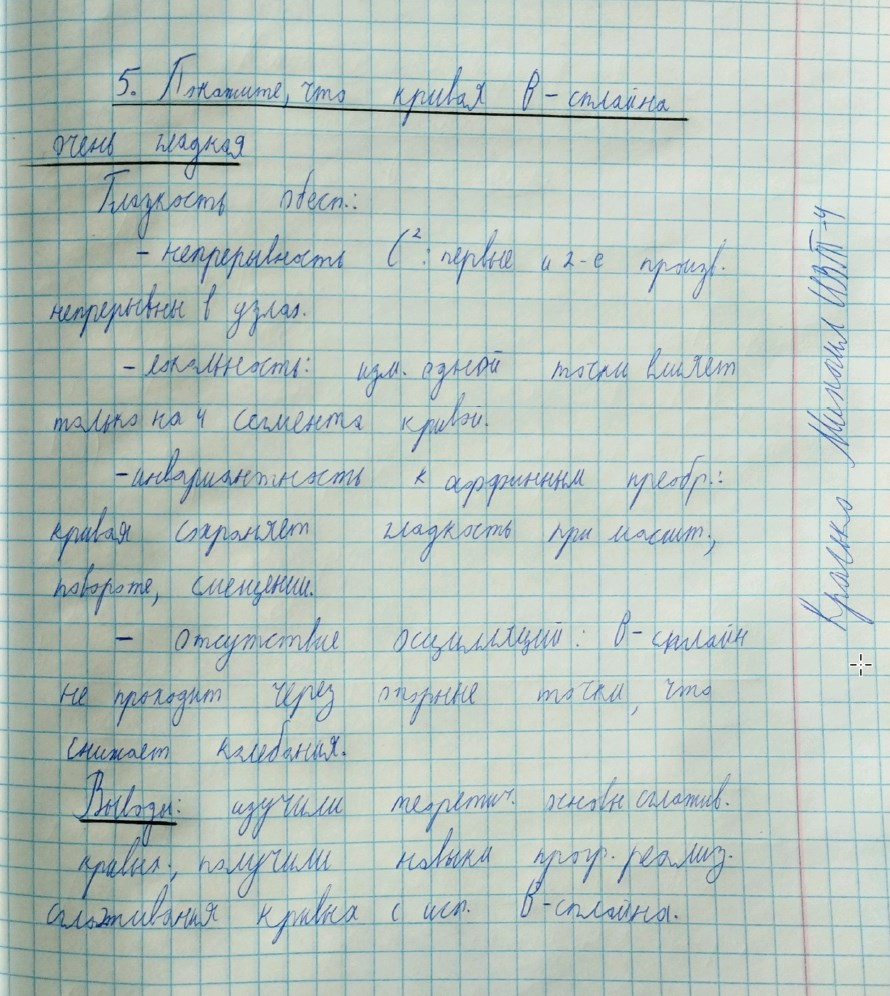 5. Покажите, что кривая B-сплайна
очень гладкая
Гладкость обесп.:
- непрерывность C²: первые и 2-е произв.
непрерывны в узлах.
- локальность: изм. одной точки влияет
только на 4 сегмента кривой.
- инвариантность к аффинным преобр.:
кривая сохраняет гладкость при масшт.,
повороте, смещении.
- отсутствие осцилляций: B-сплайн
не проходит через опорные точки, что
снижает колебания.
Выводы: изучили теоретич. основы сглажив.
кривых., получили навыки прогр. реализ.
сглаживания кривых с исп. B-сплайна.
Михаил ИВТ-4